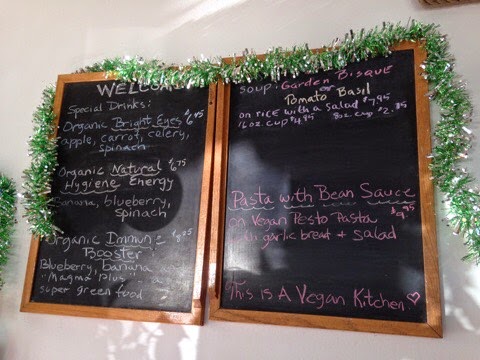 WELCOME
Special Drinks:
Organic Bright Eyes $6.95
apple, carrot, celery,
spinach
Organic Natural $6.75
Hygiene Energy
Banana, blueberry,
Spinach
Organic Immune
Booster
Blueberry, banana
"Magma Plus"
super green food
Soup: Garden Bisque
or
Tomato Basil
on rice with a salad $7.95
16oz. cup $4.95 8oz cup $2.95
Pasta with Bean Sauce
on Vegan Pesto Pasta
with garlic bread + Salad
This is A Vegan Kitchen ♡